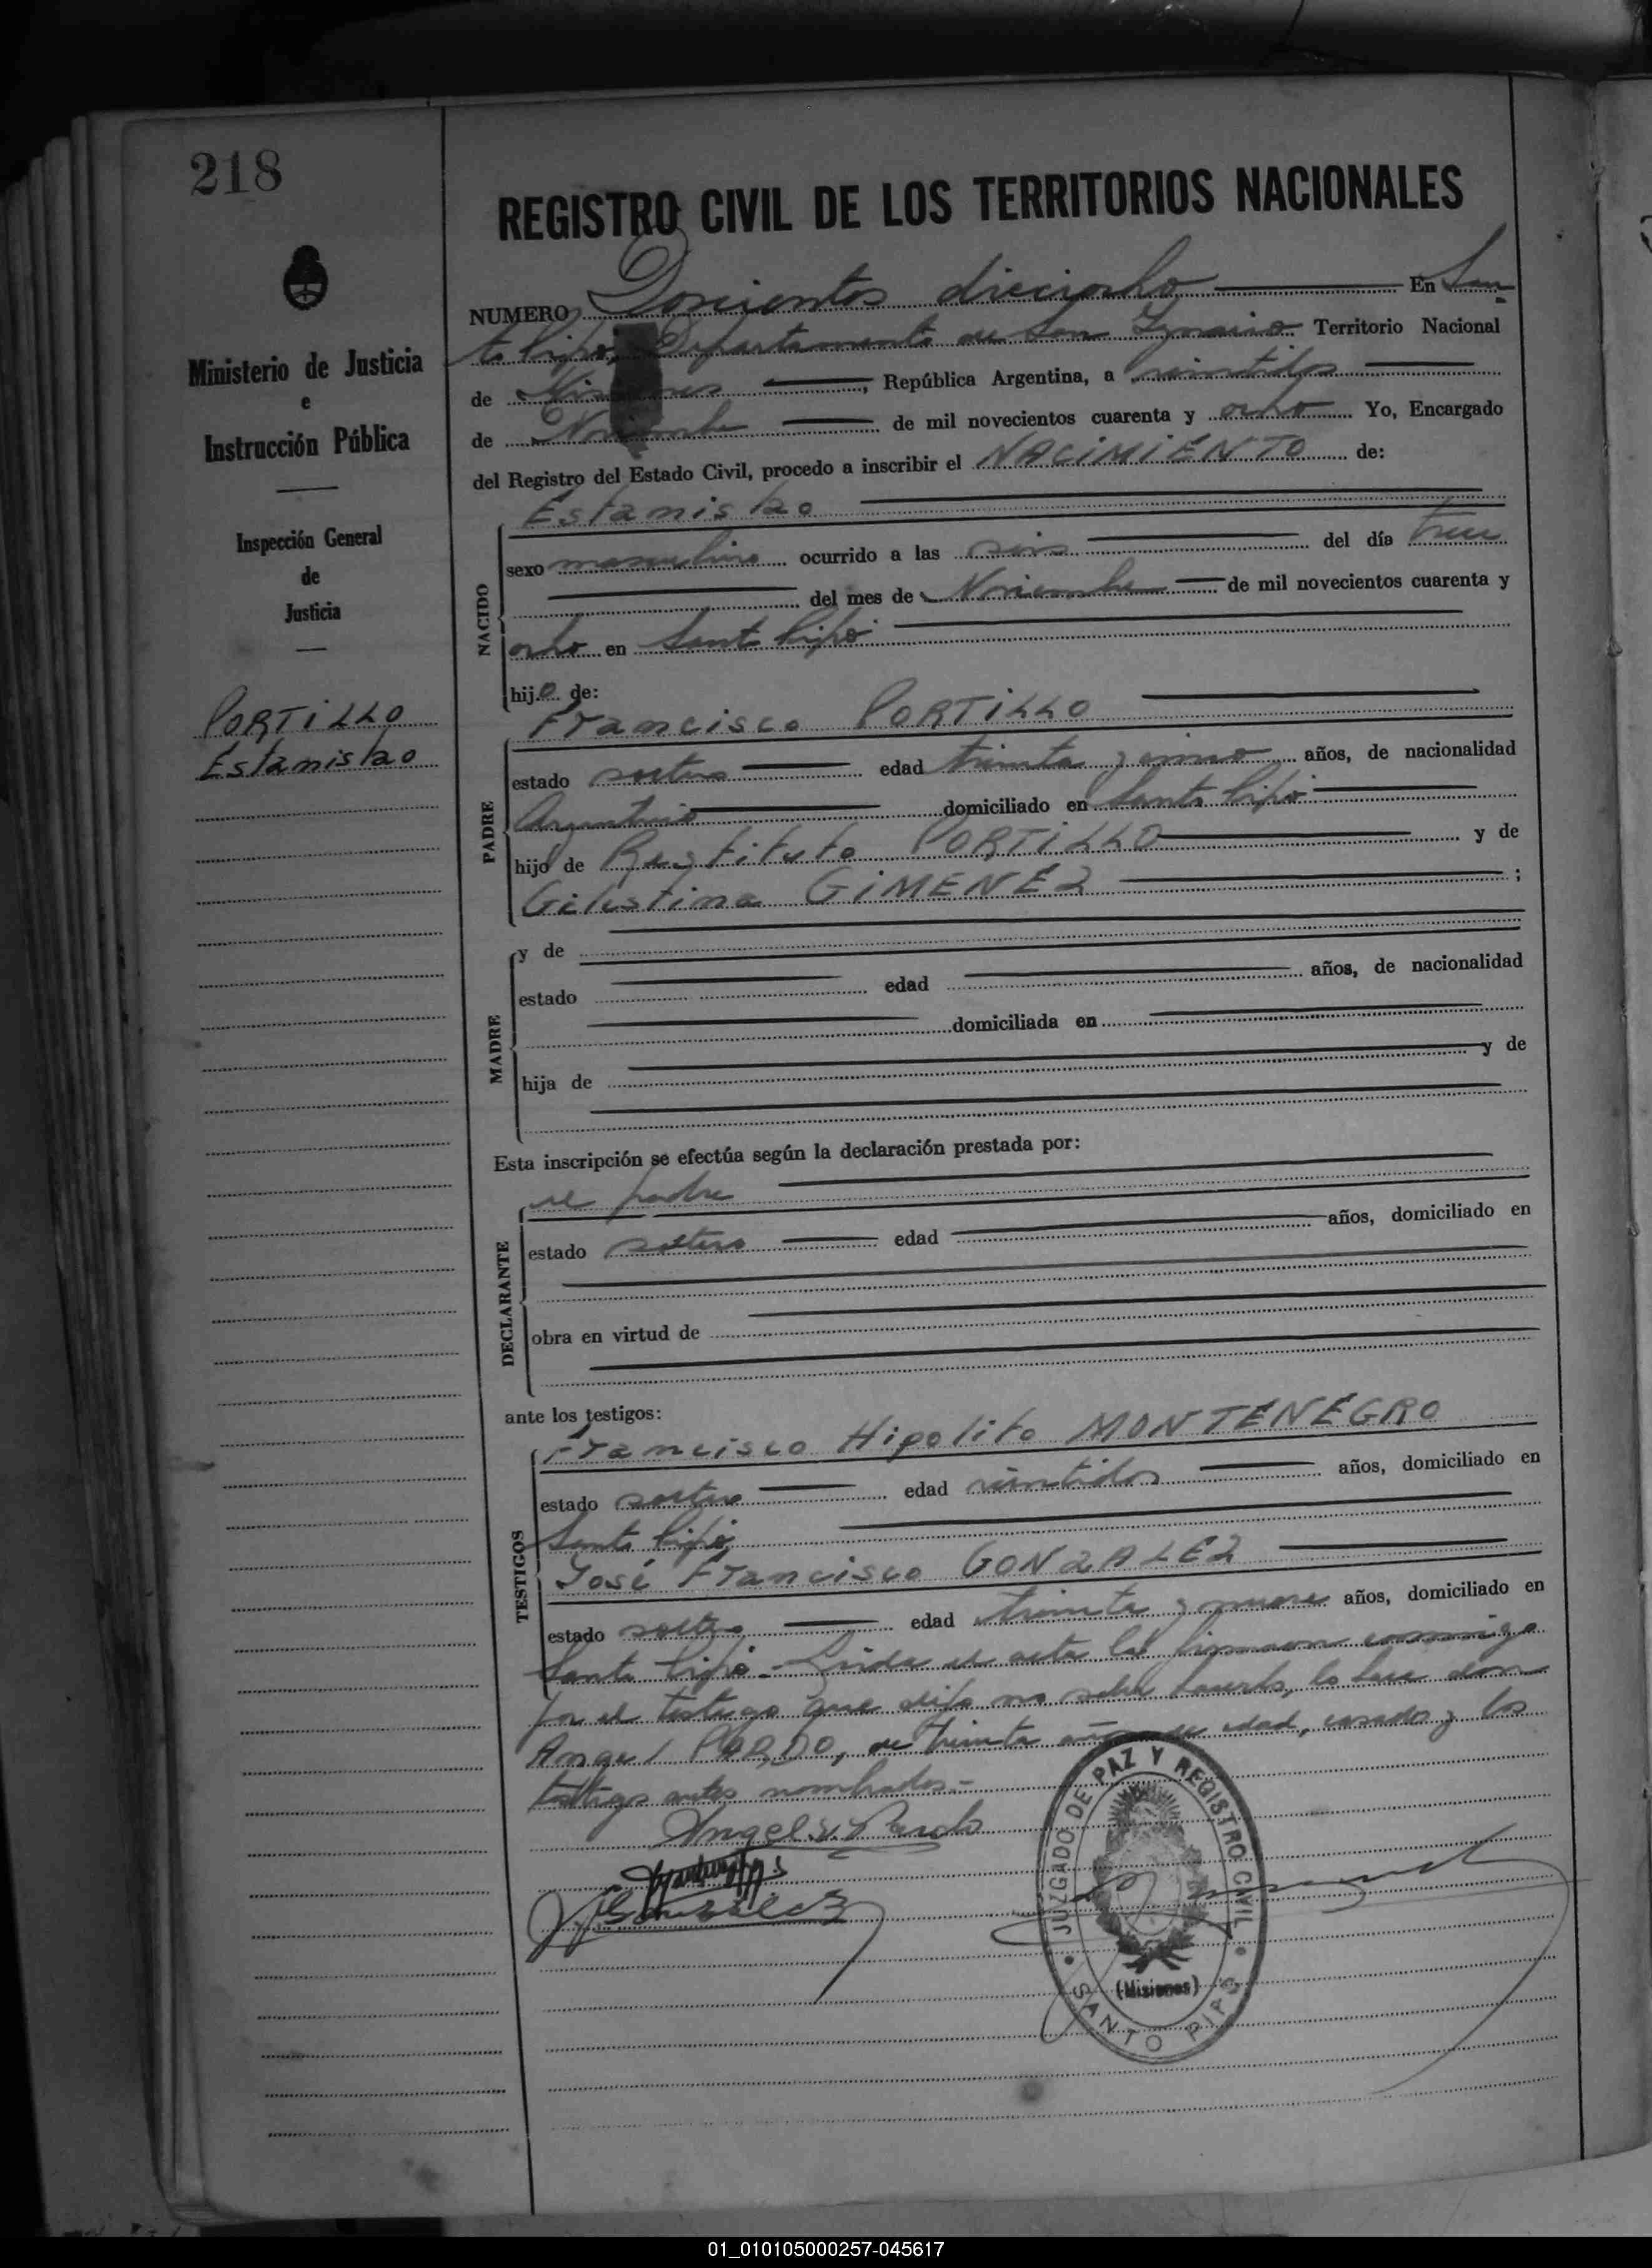 218
REGISTRO CIVIL DE LOS TERRITORIOS NACIONALES
NUMERO Doscientos dieciocho En San-
to Pipó, Departamento de San Ignacio Territorio Nacional
de Misiones, República Argentina, a veintidos
de Noviembre de mil novecientos cuarenta y ocho Yo, Encargado
del Registro del Estado Civil, procedo a inscribir el NACIMIENTO de:
Ministerio de Justicia
e
Instrucción Pública
Inspección General
de
Justicia
PORTILLO
Estanislao
NACIDO
Estanislao
sexo masculino ocurrido a las seis del día trece
del mes de Noviembre de mil novecientos cuarenta y
ocho en Santo Pipó
hijo de:
PADRE
Francisco PORTILLO
estado soltero edad treinta y cinco años, de nacionalidad
Argentino domiciliado en Santo Pipó
hijo de Restituto PORTILLO y de
Celestina GIMENEZ ;
MADRE
y de
estado edad años, de nacionalidad
domiciliada en
hija de y de
Esta inscripción se efectúa según la declaración prestada por:
DECLARANTE
el padre
estado soltero edad años, domiciliado en
obra en virtud de
ante los testigos:
TESTIGOS
Francisco Hipolito MONTENEGRO
estado soltero edad veintidos años, domiciliado en
Santo Pipó
José Francisco GONZALEZ
estado soltero edad treinta y nueve años, domiciliado en
Santo Pipó.- Leida el acta la firman conmigo
por el testigo que dijo no saber hacerlo, lo hace don
Angel PARDO, de treinta años de edad, casado y los
testigos antes nombrados.-
Angel V. Pardo
JFGonzalez
JUZGADO DE PAZ Y REGISTRO CIVIL
(Misiones)
SANTO PIPÓ
01_010105000257-045617